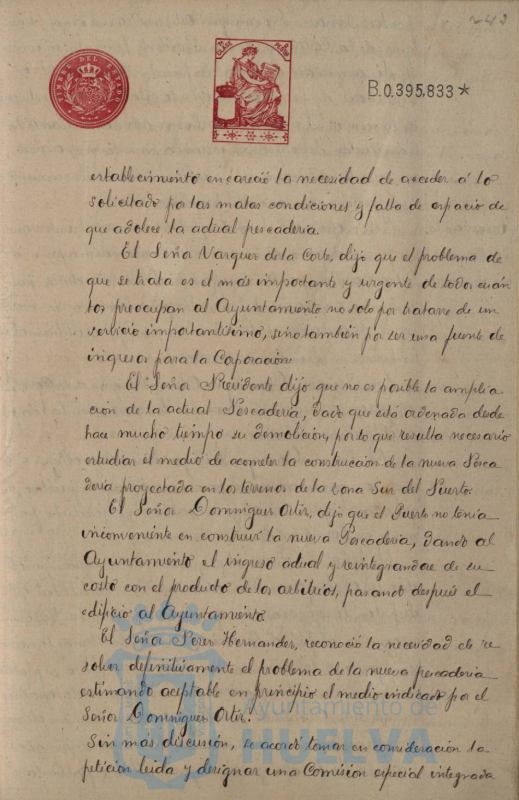 243
TIMBRE DEL ESTADO
B.0.395,833*
establecimiento encareció la necesidad de acceder á lo
solicitado por las malas condiciones y falta de espacio de
que adolece la actual pescaderia.
El Señor Vazquez de la Corte, dijo que el problema de
que se trata es el más importante y urgente de todos cuán
tos preocupan al Ayuntamiento no solo por tratarse de un
servicio importantísimo, sino también por ser una fuente de
ingresos para la Coporación.
El Señor Presidente dijo que no es posible la amplia
ción de la actual Pescaderia, dado que está ordenada desde
hace mucho tiempo su demolición, por lo que resulta necesario
estudiar el medio de acometer la construcción de la nueva Pesca
deria proyectada en los terrenos de la zona Sur del Puerto.
El Señor Dominguez Ortiz, dijo que el Puerto no tenia
inconveniente en construir la nueva Pescaderia, dando al
Ayuntamiento el ingreso actual y reintegrandose de su
costo con el producto de los arbitrios, pasando después el
edificio al Ayuntamiento.
El Señor Perez Hernandez, reconoció la necesidad de re
solver definitivamente el problema de la nueva pescaderia
estimando aceptable en principio el medio indicado por el
Señor Dominguez Ortiz.
Sin más discusión, se acordó tomar en consideración la
petición leida y designar una Comisión especial integrada
Ayuntamiento de
HUELVA